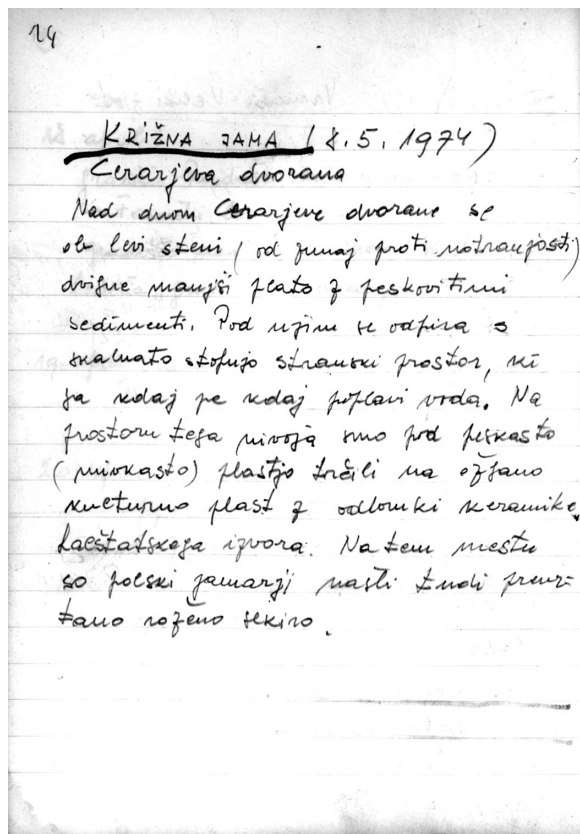 24
KRIŽNA JAMA (8.5.1974)
Cerarjeva dvorana
Nad dnom Cerarjeve dvorane se
ob levi steni (od zunaj proti notranjosti)
dvigne manjši plato z peskovitimi
sedimenti. Pod njim se odpira s
skalnato stopnjo stranski prostor, ki
ga kdaj pe kdaj poplavi voda. Na
prostoru tega nivoja smo pod peskasto
(mivkasto) plastjo trčili na ožgano
kulturno plast z odlomki keramike
halštatskega izvora. Na tem mestu
so polski jamarji našli tudi
roženo sekiro.